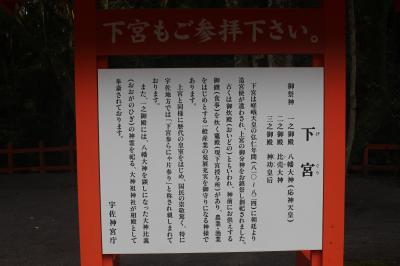 下宮もご参拝下さい。
下宮
げ ぐう
御祭神 一之御殿 八幡大神(応神天皇)
二之御殿 比売大神
三之御殿 神功皇后
下宮は嵯峨天皇の弘仁年間(八一〇~八二四)に朝廷より
造宮使が遣わされ、上宮の御分神をお鎮祭し創祀されました。
古くは御炊殿(おいどの)ともいわれ、神前にお供えする
御饌(食事)を炊く竈殿(現下宮授与所)があり、農業・漁業
をはじめとする一般産業の発展充実を御守りになる神様で
あります。
上宮と同様に歴代の皇室をはじめ、国民の崇敬篤く、特に
宇佐地方では「下宮参らにゃ片参り」と称され親しまれて
おります。
また、一之御殿には、八幡大神を顕しになった大神比義
(おおがのひぎ)の神霊を祀る、大神祖神社が相殿として
奉斎されております。
宇佐神宮庁